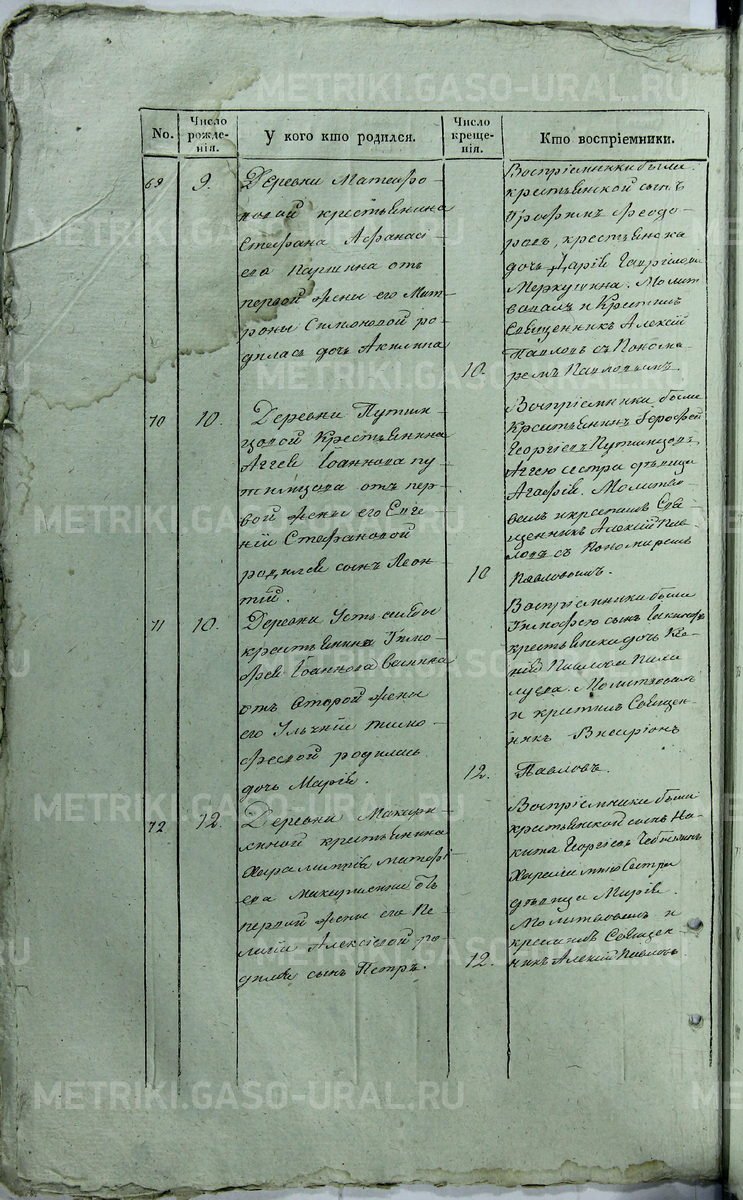 No.
Число рожде-нія.
У кого кто родился.
Число креще-нія.
Кто воспріемники.
69
9.
Деревни Матафо-
новой крестьянина
Стефана Афанасі-
ева Паршина отъ
первой жены его Мат-
роны Симоновой ро-
дилась дочь Акилина
10.
Воспріемники были
крестьянской сынъ
Трофимъ Феодо-
ровъ, крестьянска
дочь Дарія Гаврилова
Меркушина. Молит-
вовалъ и Крестилъ
Священникъ Алексій
Павловъ съ Понома-
ремъ Павловымъ.
70
10.
Деревни Путин-
цовой Крестьянина
Аггея Іоаннова Пу-
тинцова отъ пер-
вой жены его Евге-
ніи Стефановой
родился сынъ Леон-
тій.
10
Воспріемники были
крестьянинъ
Георгіевъ Путинцовъ,
Аггею сестра дѣвица
Агафія. Молитво-
валъ и крестилъ Свя-
щенникъ Алексій Пав-
ловъ съ Пономаремъ
Павловымъ.
71
10.
Деревни Усть-
крестьянина Тимо-
фея Іоаннова
отъ второй жены
его Тимо-
феевой родилась
дочь Марія.
12.
Воспріемники были
Тимофею сынъ
крестьянска дочь
Молитвовалъ
и крестилъ Священ-
никъ Виссаріонъ
Павловъ.
72
12.
Деревни Макари-
хиной крестьянина
Харалампія Матфі-
ева отъ
первой жены его Пе-
лагіи Алексіевой ро-
дился сынъ Петръ.
12.
Воспріемники были
крестьянской сынъ Ни-
кита Георгіевъ
сестра
дѣвица Марія.
Молитвовалъ и
крестилъ Священ-
никъ Алексій Павловъ
METRIKI.GASO-URAL.RU